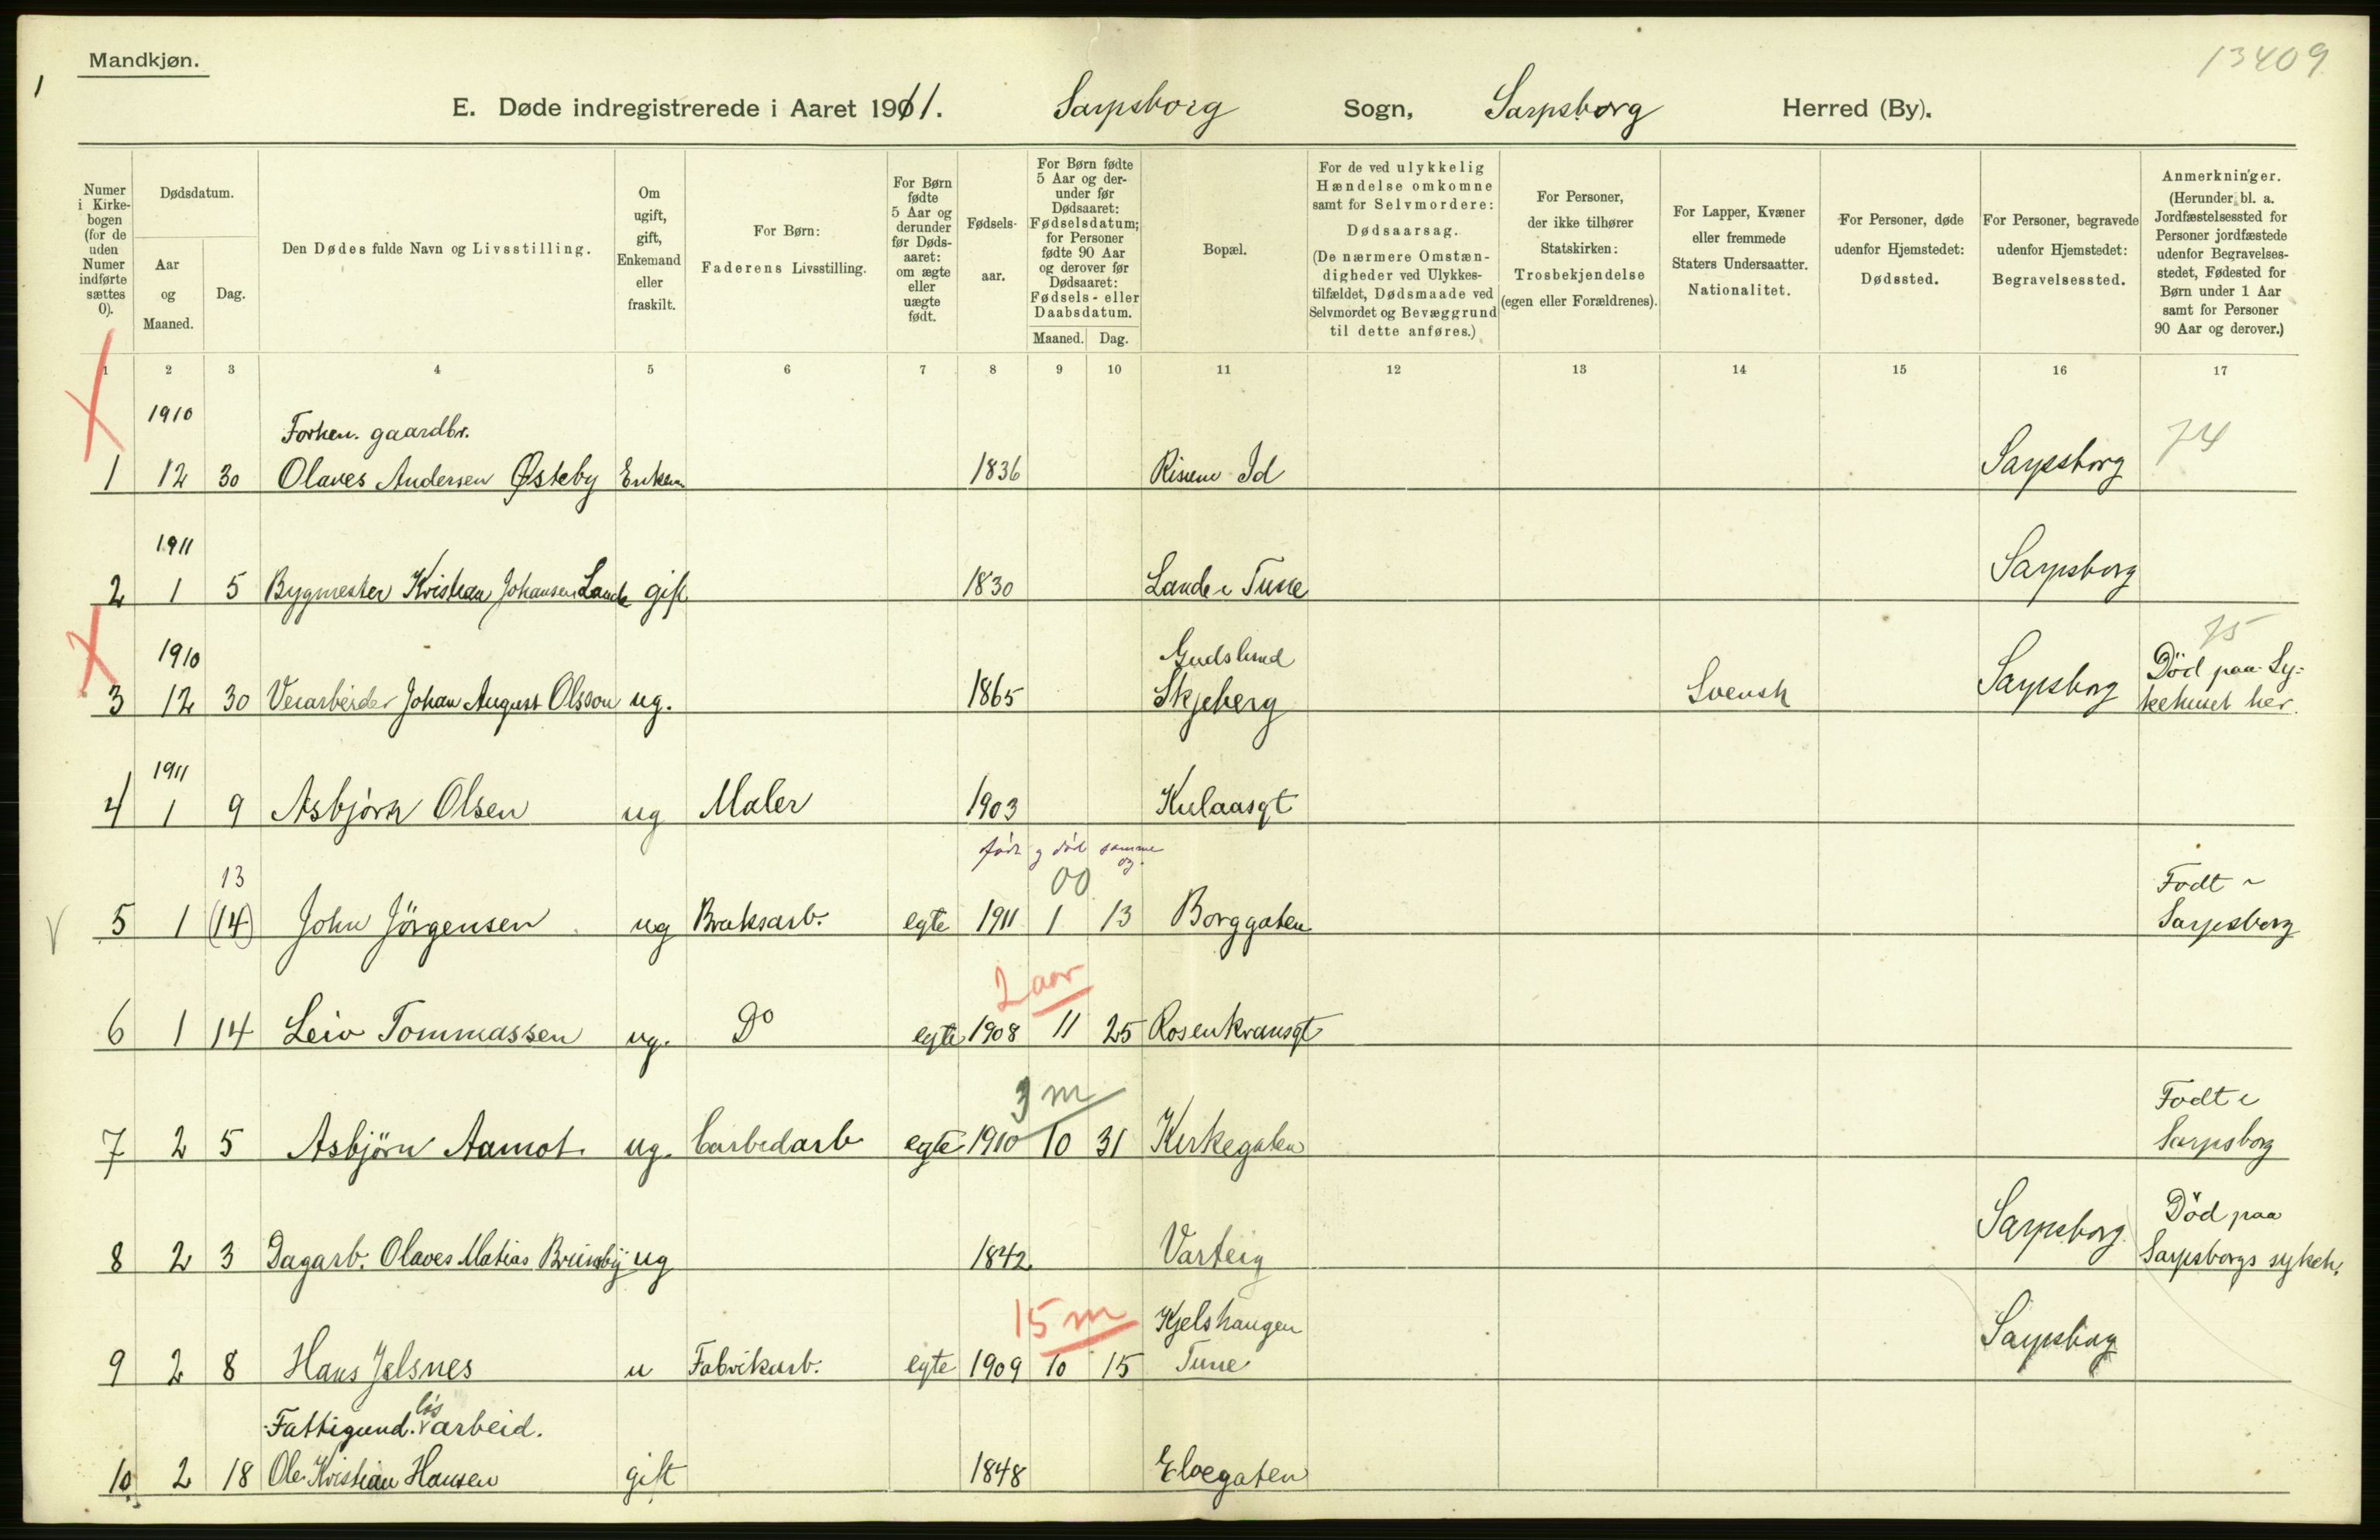 Mandkjøn.
13409
1
E. Døde indregistrerede i Aaret 1911. Sarpsborg Sogn, Sarpsborg Herred (By).
Numer i Kirkebogen (for de uden Numer indførte sættes 0).
Dødsdatum.
Aar og Maaned.
Dag.
Den Dødes fulde Navn og Livsstilling.
Om ugift, gift, Enkemand eller fraskilt.
For Børn: Faderens Livsstilling.
For Børn fødte 5 Aar og derunder før Dødsaaret: om ægte eller uægte født.
Fødselsaar.
For Børn fødte 5 Aar og derunder før Dødsaaret: Fødselsdatum; for Personer fødte 90 Aar og derover før Dødsaaret: Fødsels- eller Daabsdatum.
Maaned. Dag.
Bopæl.
For de ved ulykkelig Hændelse omkomne samt for Selvmordere: Dødsaarsag. (De nærmere Omstændigheder ved Ulykkestilfældet, Dødsmaade ved Selvmordet og Bevæggrund til dette anføres.)
For Personer, der ikke tilhører Statskirken: Trosbekjendelse (egen eller Forældrenes).
For Lapper, Kvæner eller fremmede Staters Undersaatter. Nationalitet.
For Personer, døde udenfor Hjemstedet: Dødssted.
For Personer, begravede udenfor Hjemstedet: Begravelsessted.
Anmerkninger. (Herunder bl. a. Jordfæstelsessted for Personer jordfæstede udenfor Begravelsesstedet, Fødested for Børn under 1 Aar samt for Personer 90 Aar og derover.)
1 2 3 4 5 6 7 8 9 10 11 12 13 14 15 16 17
1910 Forhen. gaardbr. 74
1 12 30 Olaves Andersen Østeby Enkem 1836 Id Sarpsborg
1911
2 1 5 Bygmester Kristian Johansen Lande gift 1830 Lande i Tune Sarpsborg
1910 Gudslund 75
3 12 30 Veiarbeider Johan August Olsson ug. 1865 Skjeberg Svensk Sarpsborg Død paa Sykehuset her.
1911
4 1 9 Asbjørn Olsen ug Maler 1903 Kulaasgt
født og død samme dag.
13 00 Født i
5 1 (14) John Jörgensen ug Bruksarb. egte 1911 1 13 Borggaten Sarpsborg
2 aar
6 1 14 Leiv Tommassen ug. Do egte 1908 11 25 Rosenkransgt
3 m Født i
7 2 5 Asbjörn Aamot ug. Carbidarb egte 1910 10 31 Kirkegaten Sarpsborg
8 2 3 Dagarb. Olaves Matias ug 1842 Varteig Sarpsborg Död paa Sarpsborgs sykeh.
15 m Kjelshaugen
9 2 8 Hans Jelsnes u Fabrikarb. egte 1909 10 15 Tune Sarpsborg
Fattigund. løsarbeid.
10 2 18 Ole Kristian Hansen gift 1848 Elvegaten